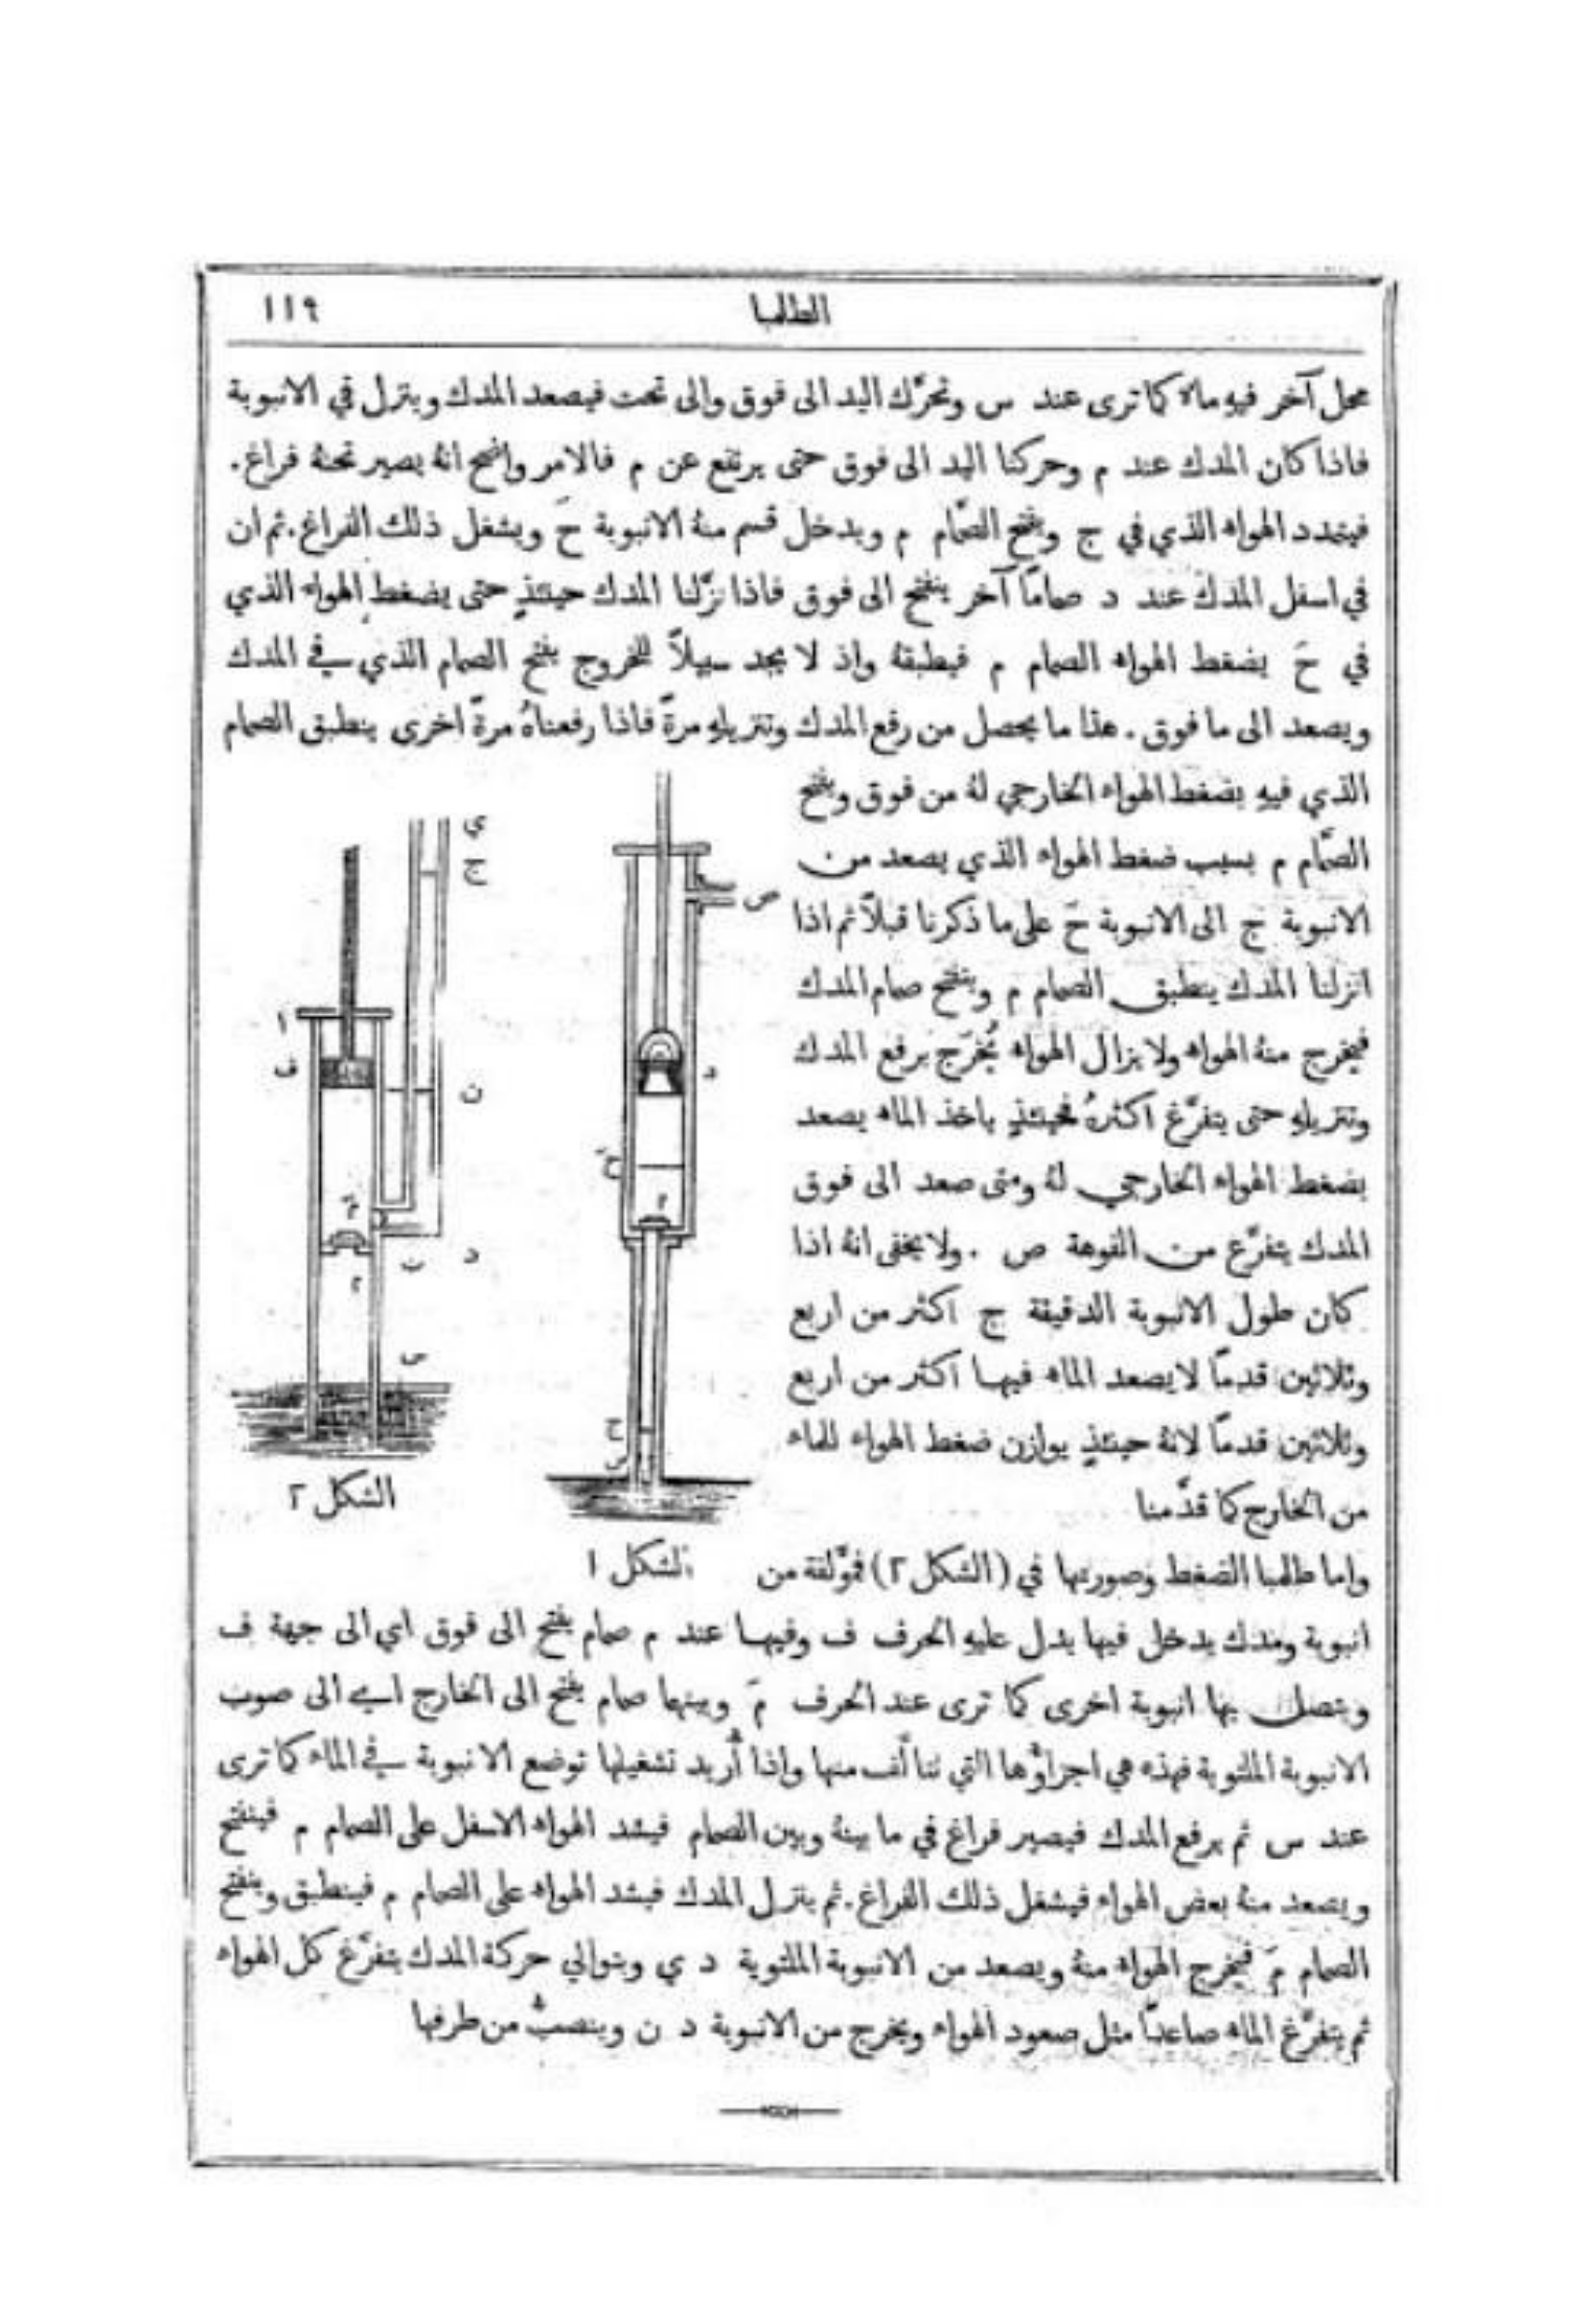 الطلمبا ١١٩
محل آخر فيهِ ماء كما ترى عند س وتحرَّك اليد الى فوق والى تحت فيصعد المدك وينزل في الانبوبة
فاذا كان المدك عند م وحركنا اليد الى فوق حتى يرتفع عن م فالامر واضح انهُ يصير تحتهُ فراغ.
فيتمدد الهواء الذي في ج ويفتح الصّمام م ويدخل قسم منهُ الانبوبة حَ ويشغل ذلك الفراغ. ثم ان
في اسفل المدك عند د صمامًا آخر ينفتح الى فوق فاذا نزَّلنا المدك حينئذٍ حتى يضغط الهواء الذي
في حَ يضغط الهواء الصمام م فيطبقهُ واذ لا يجد سبيلاً للخروج يفتح الصمام الذي في المدك
ويصعد الى ما فوق. هذا ما يحصل من رفع المدك وتنزيلهِ مرةً فاذا رفعناهُ مرةً اخرى ينطبق الصمام
الذي فيهِ بضغط الهواء الخارجي لهُ من فوق ويفتح
الصّمام م بسبب ضغط الهواء الذي يصعد من
الانبوبة ج الى الانبوبة حَ على ما ذكرنا قبلاً ثم اذا
انزلنا المدك ينطبق الصمام م وينفتح صمام المدك
فيخرج منهُ الهواء ولا يزال الهواء يُخرَج برفع المدك
وتنزيلهِ حتى يتفرَّغ اكثرهُ فحينئذٍ ياخذ الماء يصعد
بضغط الهواء الخارجي لهُ ومتى صعد الى فوق
المدك يتفرَّغ من الفوهة ص . ولا يخفى انهُ اذا
كان طول الانبوبة الدقيقة ج اكثر من اربع
وثلاثين قدمًا لا يصعد الماء فيها اكثر من اربع
وثلاثين قدمًا لانهُ حينئذٍ يوازن ضغط الهواء للماء
من الخارج كما قدَّمنا
ص
د
حَ
م
ج
س
الشكل ١
ي
ج
ا
ف
ن
مَ
م
ب
د
س
الشكل ٢
واما طلمبا الضغط وصورتها في (الشكل ٢) فمؤَلفة من
انبوبة ومدك يدخل فيها يدل عليهِ الحرف ف وفيها عند م صمام يفتح الى فوق اي الى جهة ف
ويتصل بها انبوبة اخرى كما ترى عند الحرف مَ وبينهما صمام يفتح الى الخارج اي الى صوب
الانبوبة الملتوية فهذه هي اجزاؤُها التي تتأَلف منها واذا أُريد تشغيلها توضع الانبوبة في الماء كما ترى
عند س ثم يرفع المدك فيصير فراغ في ما بينهُ وبين الصمام فيشد الهواء الاسفل على الصمام م فينفتح
ويصعد منهُ بعض الهواء فيشغل ذلك الفراغ. ثم ينزل المدك فيشد الهواء على الصمام م فينطبق وينفتح
الصمام مَ فيخرج الهواء منهُ ويصعد من الانبوبة الملتوية د ي وبتوالي حركة المدك يتفرَّغ كل الهواء
ثم يتفرَّغ الماء صاعدًا مثل صعود الهواء ويخرج من الانبوبة د ن وينصبُّ من طرفها